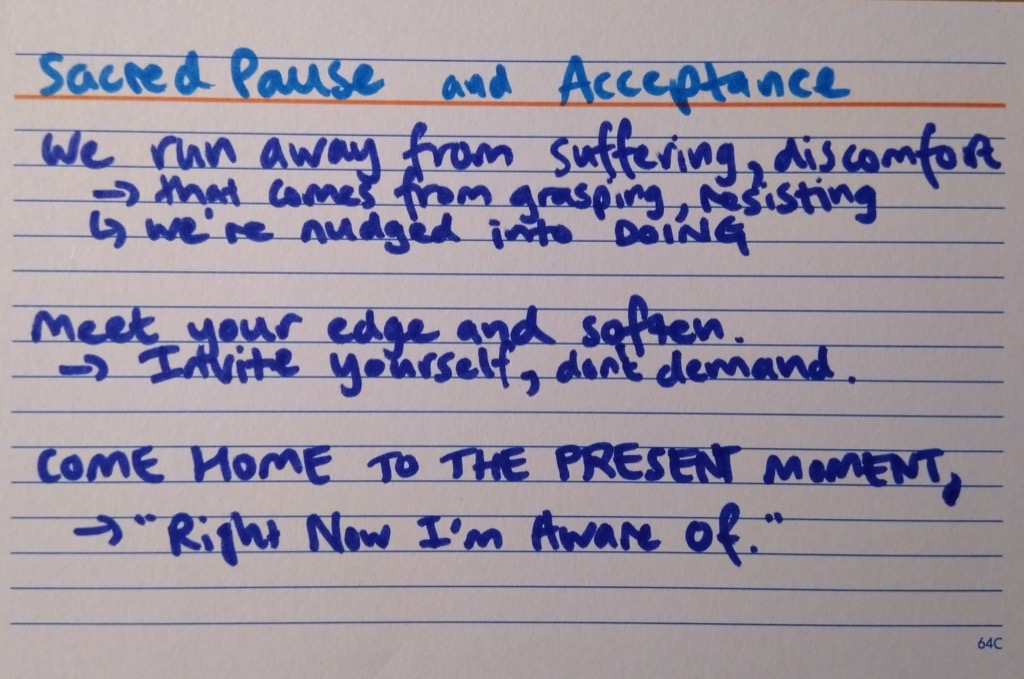 Sacred Pause and Acceptance
We run away from suffering, discomfort
→ that comes from grasping, resisting
↳ we're nudged into DOING
Meet your edge and soften.
→ Invite yourself, dont demand.
COME HOME TO THE PRESENT MOMENT,
→ "Right Now I'm Aware Of."
64C